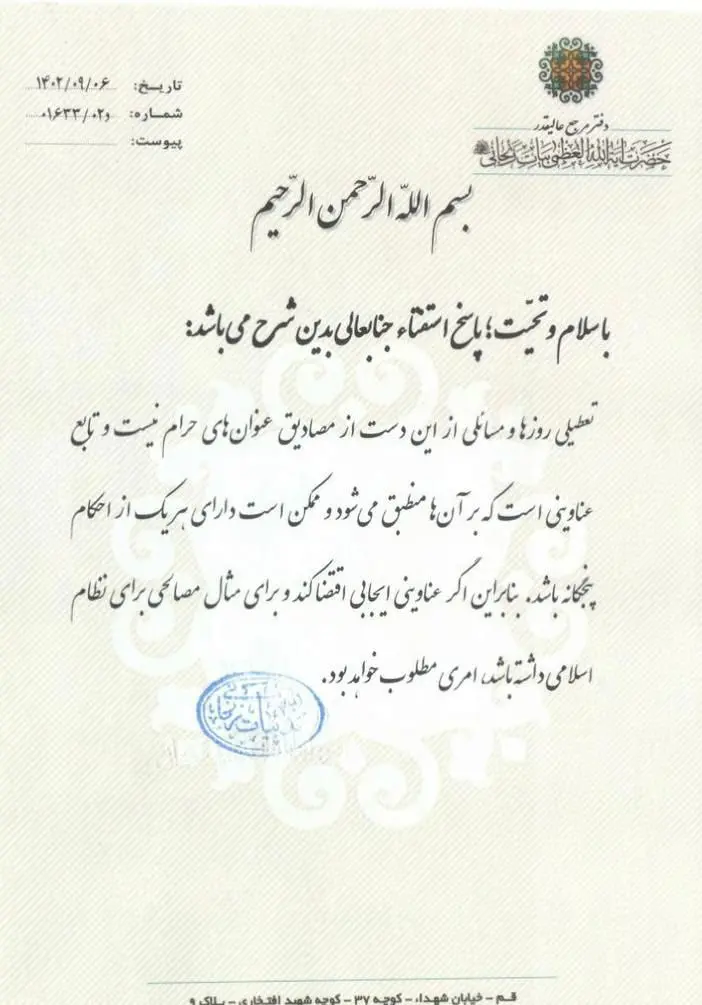 دفتر مرجع عالیقدر
حضرت آیة الله العظمی بیات زنجانی
تاریخ: ۱۴۰۲/۰۹/۰۶
شماره: ۰۱۶۳۳/۰۲و
پیوست:
بسم اللّه الرّحمن الرّحیم
با سلام و تحیّت؛ پاسخ استفتاء جنابعالی بدین شرح می باشد:
تعطیلی روزها و مسائلی از این دست از مصادیق عنوان های حرام نیست و تابع
عناوینی است که بر آن ها منطبق می شود و ممکن است دارای هر یک از احکام
پنجگانه باشد. بنابراین اگر عناوینی ایجابی اقتضا کند و برای مثال مصالحی برای نظام
اسلامی داشته باشد، امری مطلوب خواهد بود.
قـم - خیابان شهدا، - کوچه ۳۷ - کوچه شهید افتخاری - پـلاک ۹